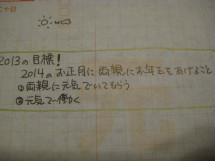 2013の目標!
2014のお正月に両親にお年玉をあげること
①両親に元気でいてもらう
②元気で働く